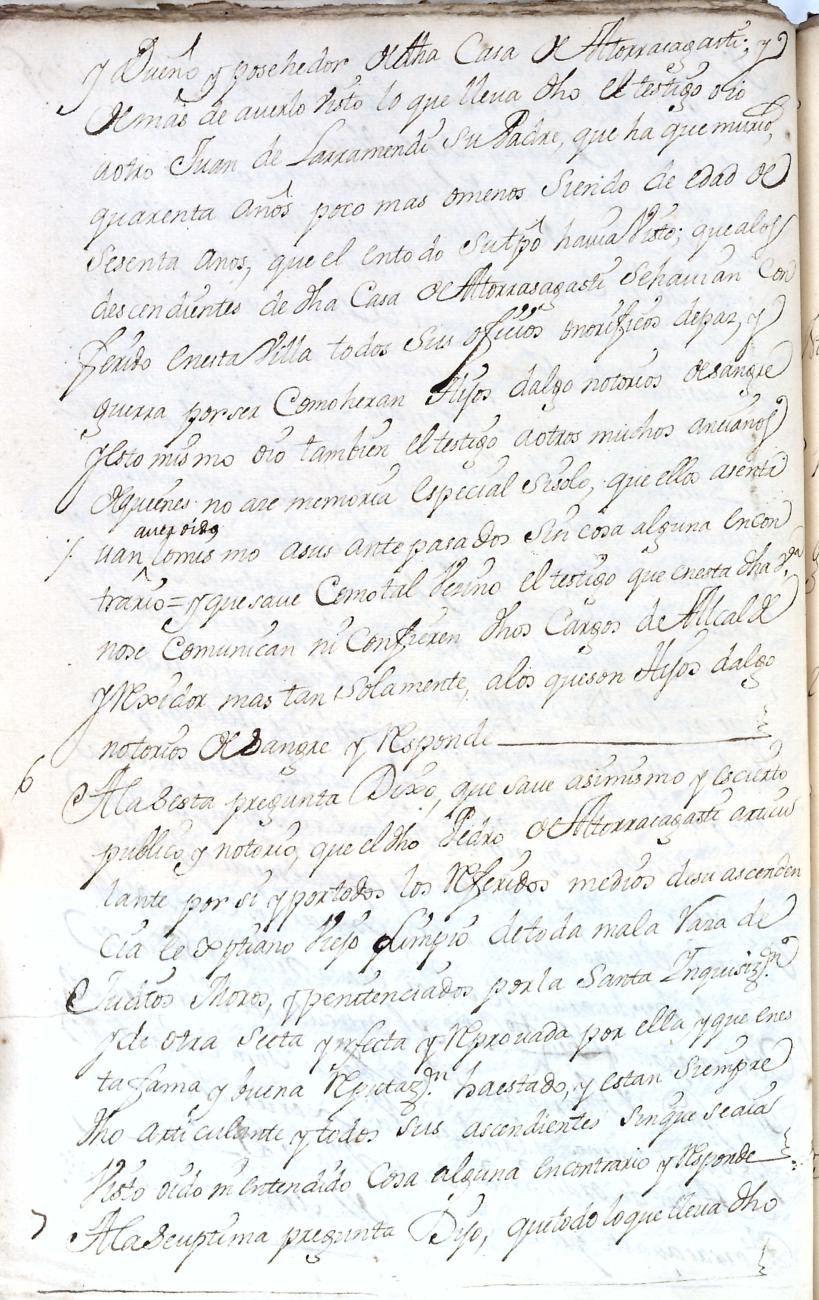 y Dueño y posehedor de dha Casa de Altorracagasti; y
demas de auerlo visto lo que lleva dho el testigo oio
aotro Juan de Larramendi su Padre, que ha que murio,
quarenta años poco mas omenos siendo de edad de
sesenta anos, que el entodo sutpo hauia visto; quealos
descendientes de dha Casa de Altorrasagasti sehauian con
ferido enesta Villa todos sus oficios onorificos depaz, y
guerra porser Comoheran Hijos dalgo notorios desangre
yesto mismo oio tambien el testigo aotros muchos ancianos
dequienes no aze memoria especial sisolo, que ellos asenta
auer oido
uan lomismo asus antepasados sin cosa alguna encon
trario = y quesaue Comotal Vezino el testigo que enesta dha Va
nose Comunican ni Confieren dhos Cargos de Alcalde
y Rexidor mas tan solamente, alos queson Hijos dalgo
notorios de Sangre y Responde
6 Ala Sesta pregunta Dixo, que saue asimismo y escierto
publico y notorio, que el dho Pedro de Altorracagasti articu
lante por si y portodos los Referidos medios desu ascenden
cia es xptiano Viejo limpio detoda mala Raza de
Judios Moros, y penitenciados por la Santa Inquisizn
y de otra secta ynfecta y Reprouada por ella, y que enes
ta fama y buena Reputazn haestado, y estan siempre
dho articulante y todos sus ascendientes sinque seaia
Visto oido ni entendido Cosa alguna encontrario y Responde
7 Ala Seuptima pregunta Dijo, quetodo loque lleua dho